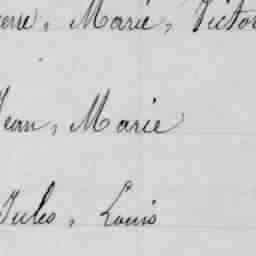 Marie, Victor
Jean, Marie
Jules, Louis